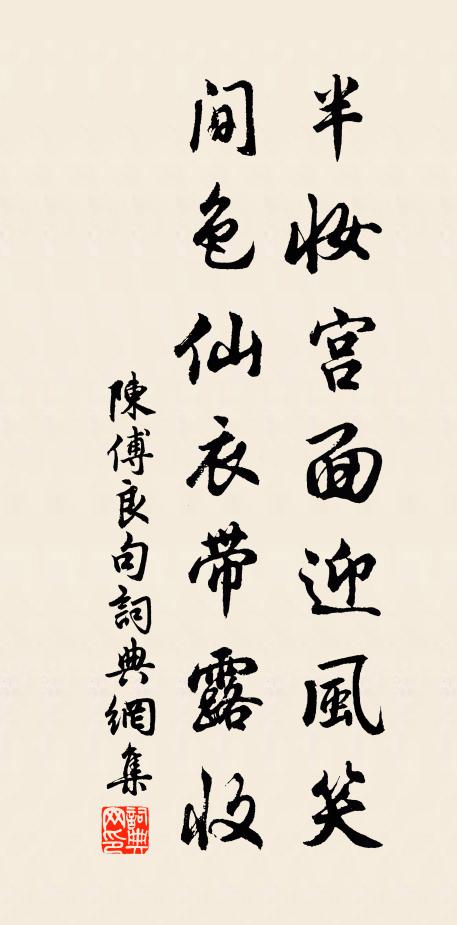 半妝宫面迎風笑
间色仙衣带露收
陳傅良句詞典網集
詞典网印